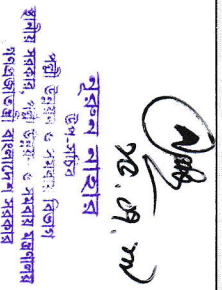 ২৫.০৭.১৮
নুরুন নাহার
উপ-সচিব
পল্লী উন্নয়ন ও সমবায় বিভাগ
স্থানীয় সরকার, পল্লী উন্নয়ন ও সমবায় মন্ত্রণালয়
গণপ্রজাতন্ত্রী বাংলাদেশ সরকার